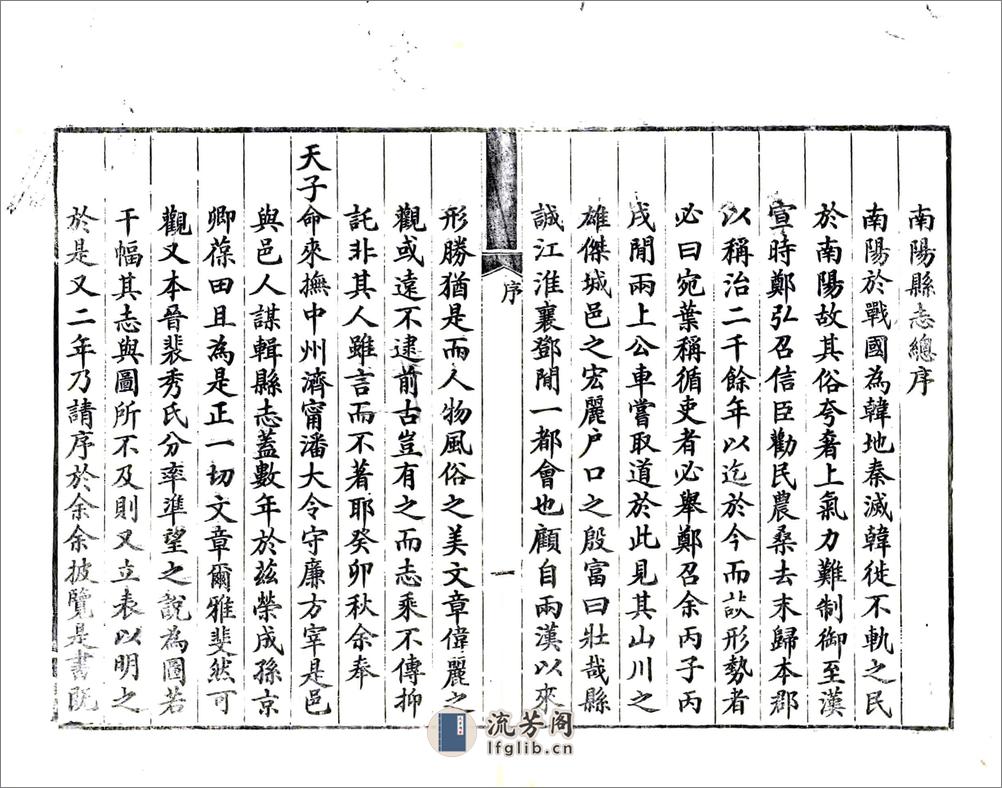 南陽縣志總序
南陽於戰國為韓地秦滅韓徙不軌之民
於南陽故其俗夸奢上氣力難制御至漢
宣時鄭弘召信臣勸民農桑去末歸本郡
以稱治二千餘年以迄於今而談形勢者
必曰宛葉稱循吏者必舉鄭召余丙子丙
戌閒兩上公車嘗取道於此見其山川之
雄傑城邑之宏麗户口之殷富曰壯哉縣
誠江淮襄鄧閒一都會也顧自兩漢以來
序
一
形勝猶是而人物風俗之美文章偉麗之
觀或遠不逮前古豈有之而志乘不傳抑
託非其人雖言而不著耶癸卯秋余奉
天子命來撫中州濟甯潘大令守廉方宰是邑
與邑人謀輯縣志蓋數年於茲榮成孫京
卿葆田且為是正一切文章爾雅斐然可
觀又本晉裴秀氏分率準望之說為圖若
干幅其志與圖所不及則又立表以明之
於是又二年乃請序於余余披覽是書既
流芳阁
lfglib.cn